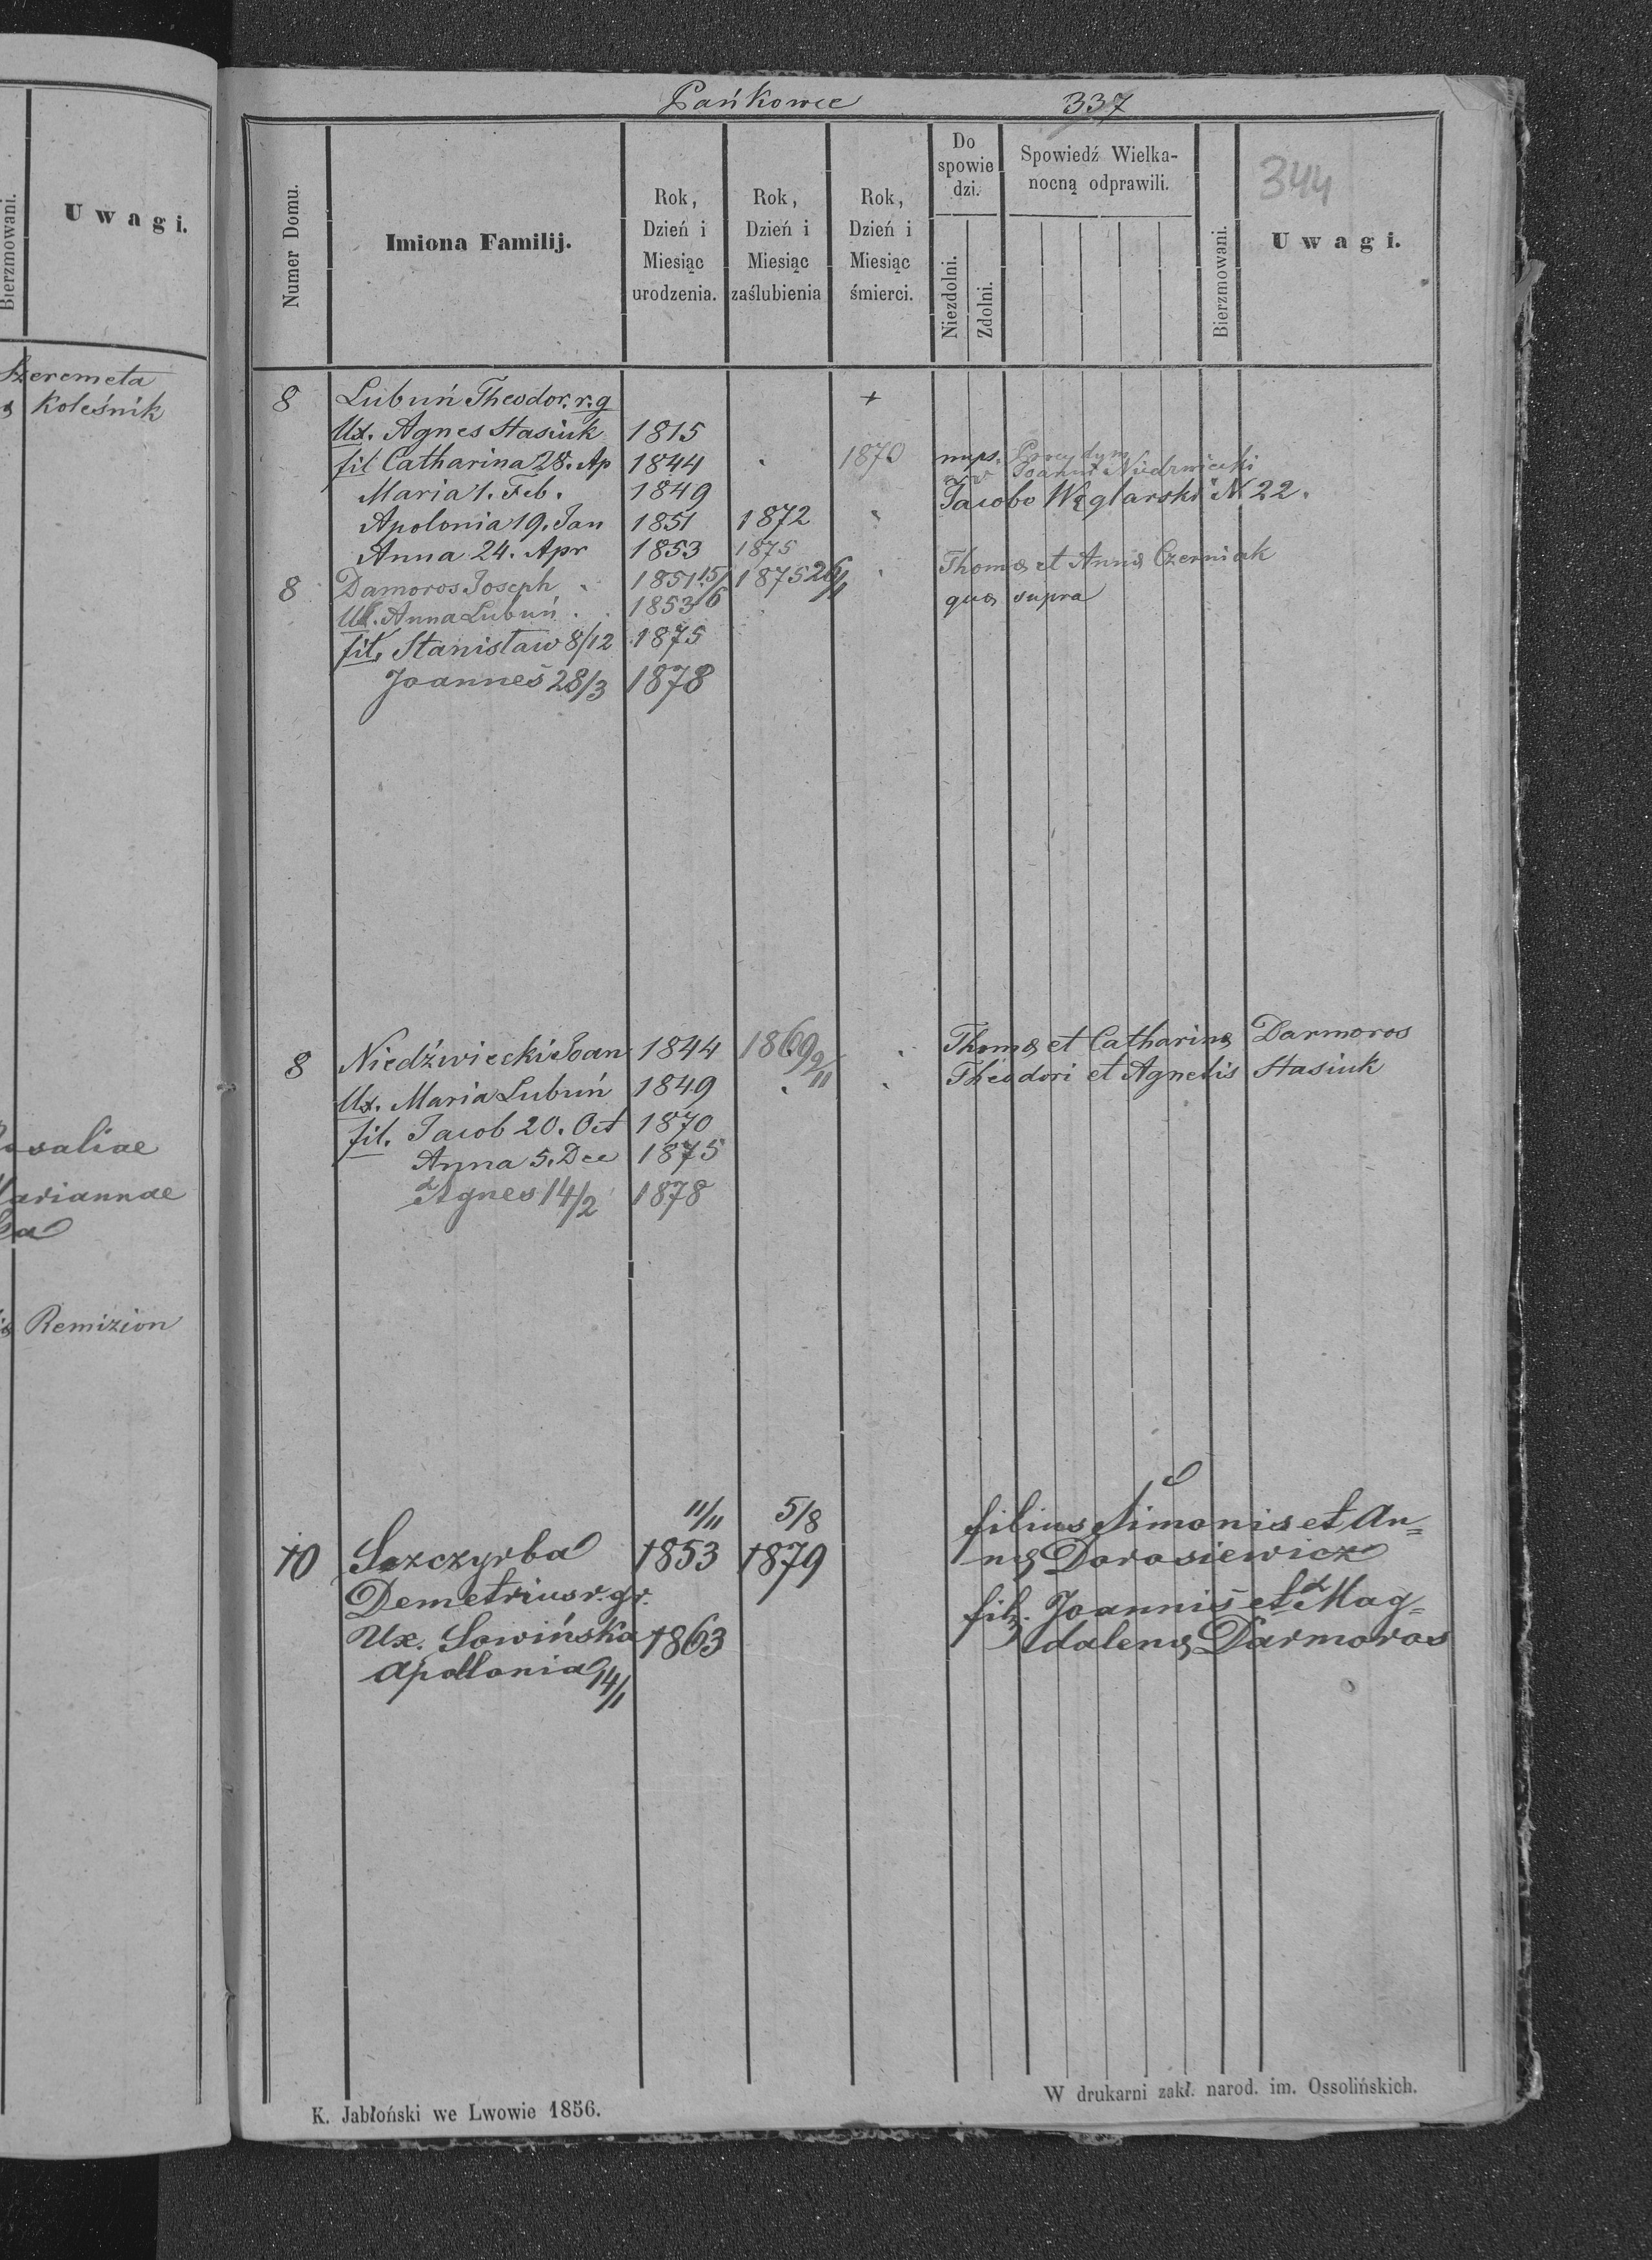 Pańkowce 337
344
Numer Domu.
Imiona Familij.
Rok, Dzień i Miesiąc urodzenia.
Rok, Dzień i Miesiąc zaślubienia
Rok, Dzień i Miesiąc śmierci.
Do spowie dzi.
Niezdolni.
Zdolni.
Spowiedź Wielka- nocną odprawili.
Bierzmowani.
Uwagi.
8 Lubuń Theodor. r. g +
Ux. Agnes Stasiuk 1815
fil Catharina 28. Ap 1844 1870 nups.
Maria 1. Feb. 1849 Joanni Niedzwiecki
Apolonia 19. Jan 1851 1872 Jacobo Węglarski N 22.
Anna 24. Apr 1853 1875
8 Damoros Joseph 1851 15/6 1875 26/11 Thomæ et Annæ Czerniak
Ux. Anna Lubuń 1853 quæ supra
fil. Stanisław 8/12 1875
Joannes 28/3 1878
8 Niedźwiecki Joan 1844 1869 9/11 Thomæ et Catharinæ Darmoros
Ux. Maria Lubuń 1849 Theodori et Agnetis Stasiuk
fil. Jacob 20. Oct 1870
Anna 5. Dec 1875
Agnes 14/2 1878
11/11 5/8 filius Simonis et An=
10 Szczyrba 1853 1879 næ Dorosiewicz
Demetrius r. gr.
fil. Joannis et Mag=
Ux. Sowińska 1863 dalenæ Darmoros
Apollonia 14/1
K. Jabłoński we Lwowie 1856.
W drukarni zakł. narod. im. Ossolińskich.
Bierzmowani.
Uwagi.
Szeremeta
Koleśnik
Remizion